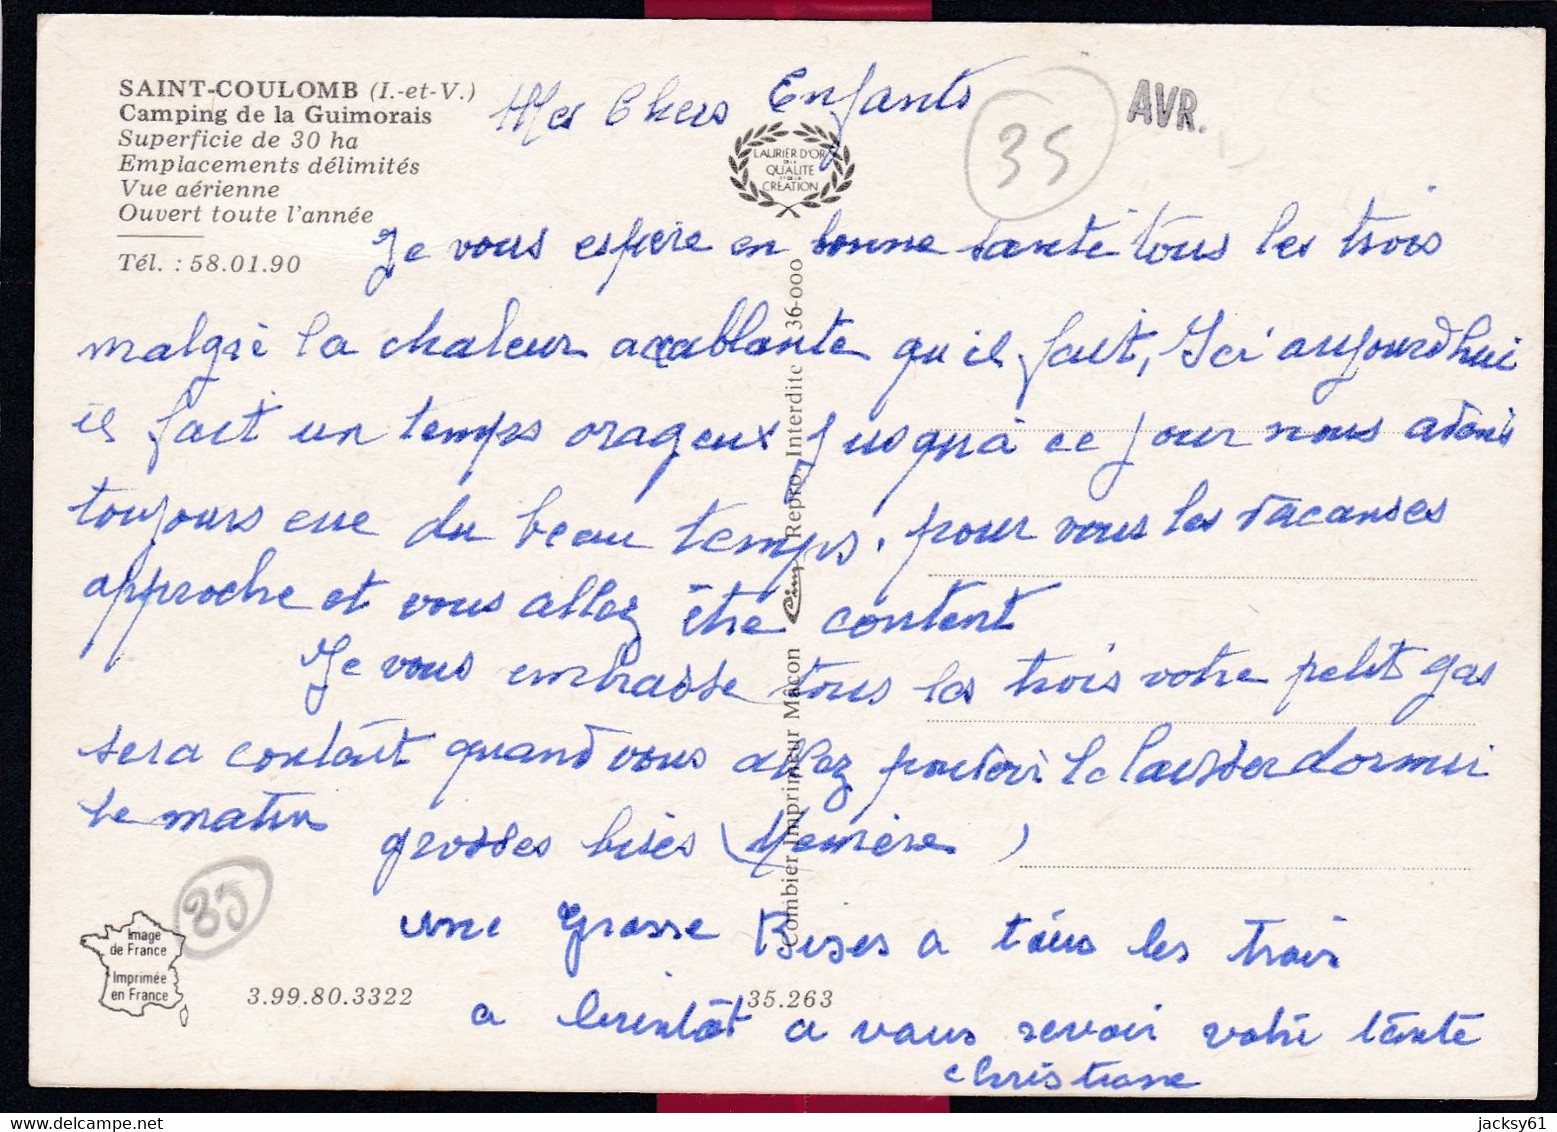 SAINT-COULOMB (I.-et-V.)
Camping de la Guimorais
Superficie de 30 ha
Emplacements délimités
Vue aérienne
Ouvert toute l'année
Tél. : 58.01.90
Mes Chers Enfants
35
AVR.
LAURIER D'OR
DE LA
QUALITE
ET DE LA
CREATION
Je vous espère en bonne santé tous les trois
malgré la chaleur accablante qu il fait, Ici aujourdhui
il fait un temps orageux jusqu'à ce jour nous avons
toujours eue du beau temps. pour vous les vacanses
approche et vous allez être content
Je vous embrasse tous les trois votre petit gas
sera contant quand vous allez pouvoir le laisser dormir
le matin
grosses bises (Memère)
une grosse Bises a tous les trois
a bientôt a vous revoir votre tante
christiane
Combier Imprimeur Mâcon Cim Repro. Interdite 36-000
35
Image
de France
Imprimée
en France
3.99.80.3322
35.263
jacksy61